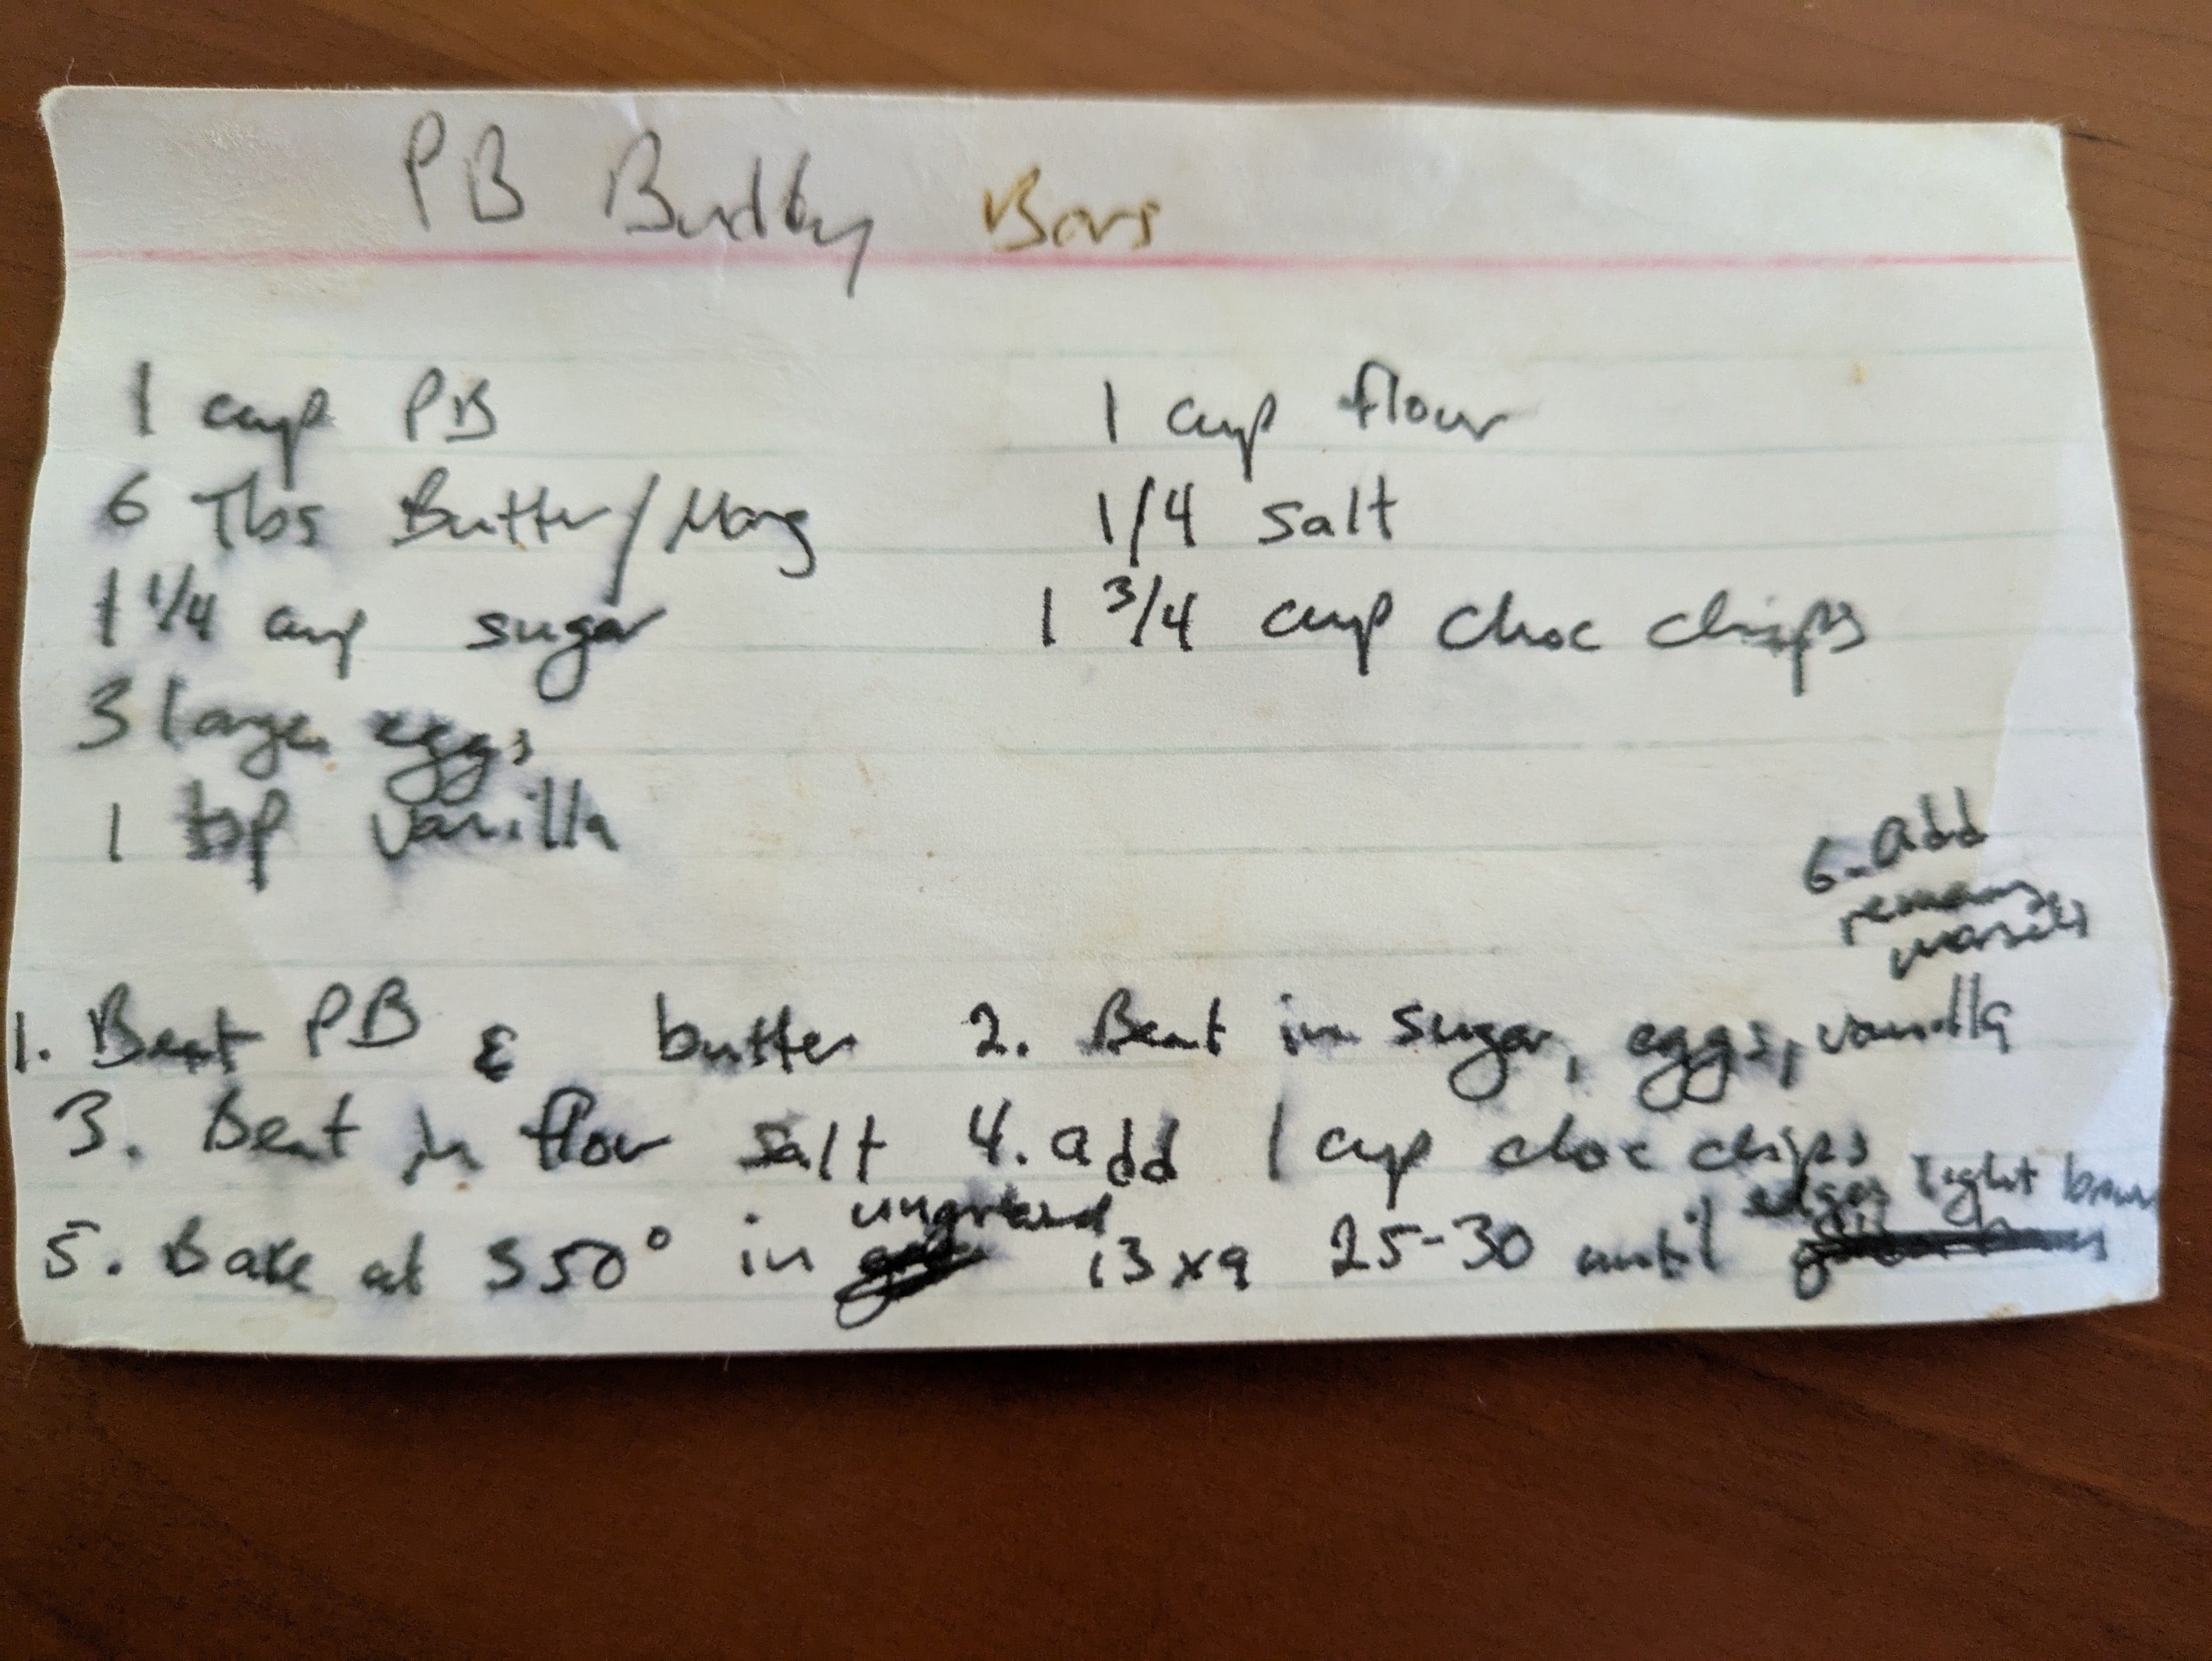 PB Buddy Bars
1 cup PB
6 Tbs Butter/Marg
1 1/4 cup sugar
3 large eggs
1 tsp vanilla
1 cup flour
1/4 salt
1 3/4 cup choc chips
1. Beat PB & butter 2. Beat in sugar, eggs, vanilla
3. Beat in flour salt 4. add 1 cup choc chips
5. Bake at 350° in ungreased 13x9 25-30 until edges light brown
6. add
remaing
morsels